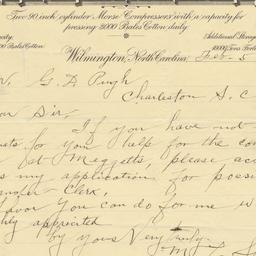 Two 90 inch cylinder Morse Compressors with a capacity for
pressing 3000 Bales Cotton daily
Additional Storage
000 Bales Cotton
10000 Tons Ferti
Wilmington, North Carolina, Feb - 5
G. D. Pugh
Charleston S. C
Dear Sir,
If you have not
for you help for the com
at Meggetts, please acc
as my application for possi
Clerk,
favor you can do for me w
appricited
by yours Very truly.